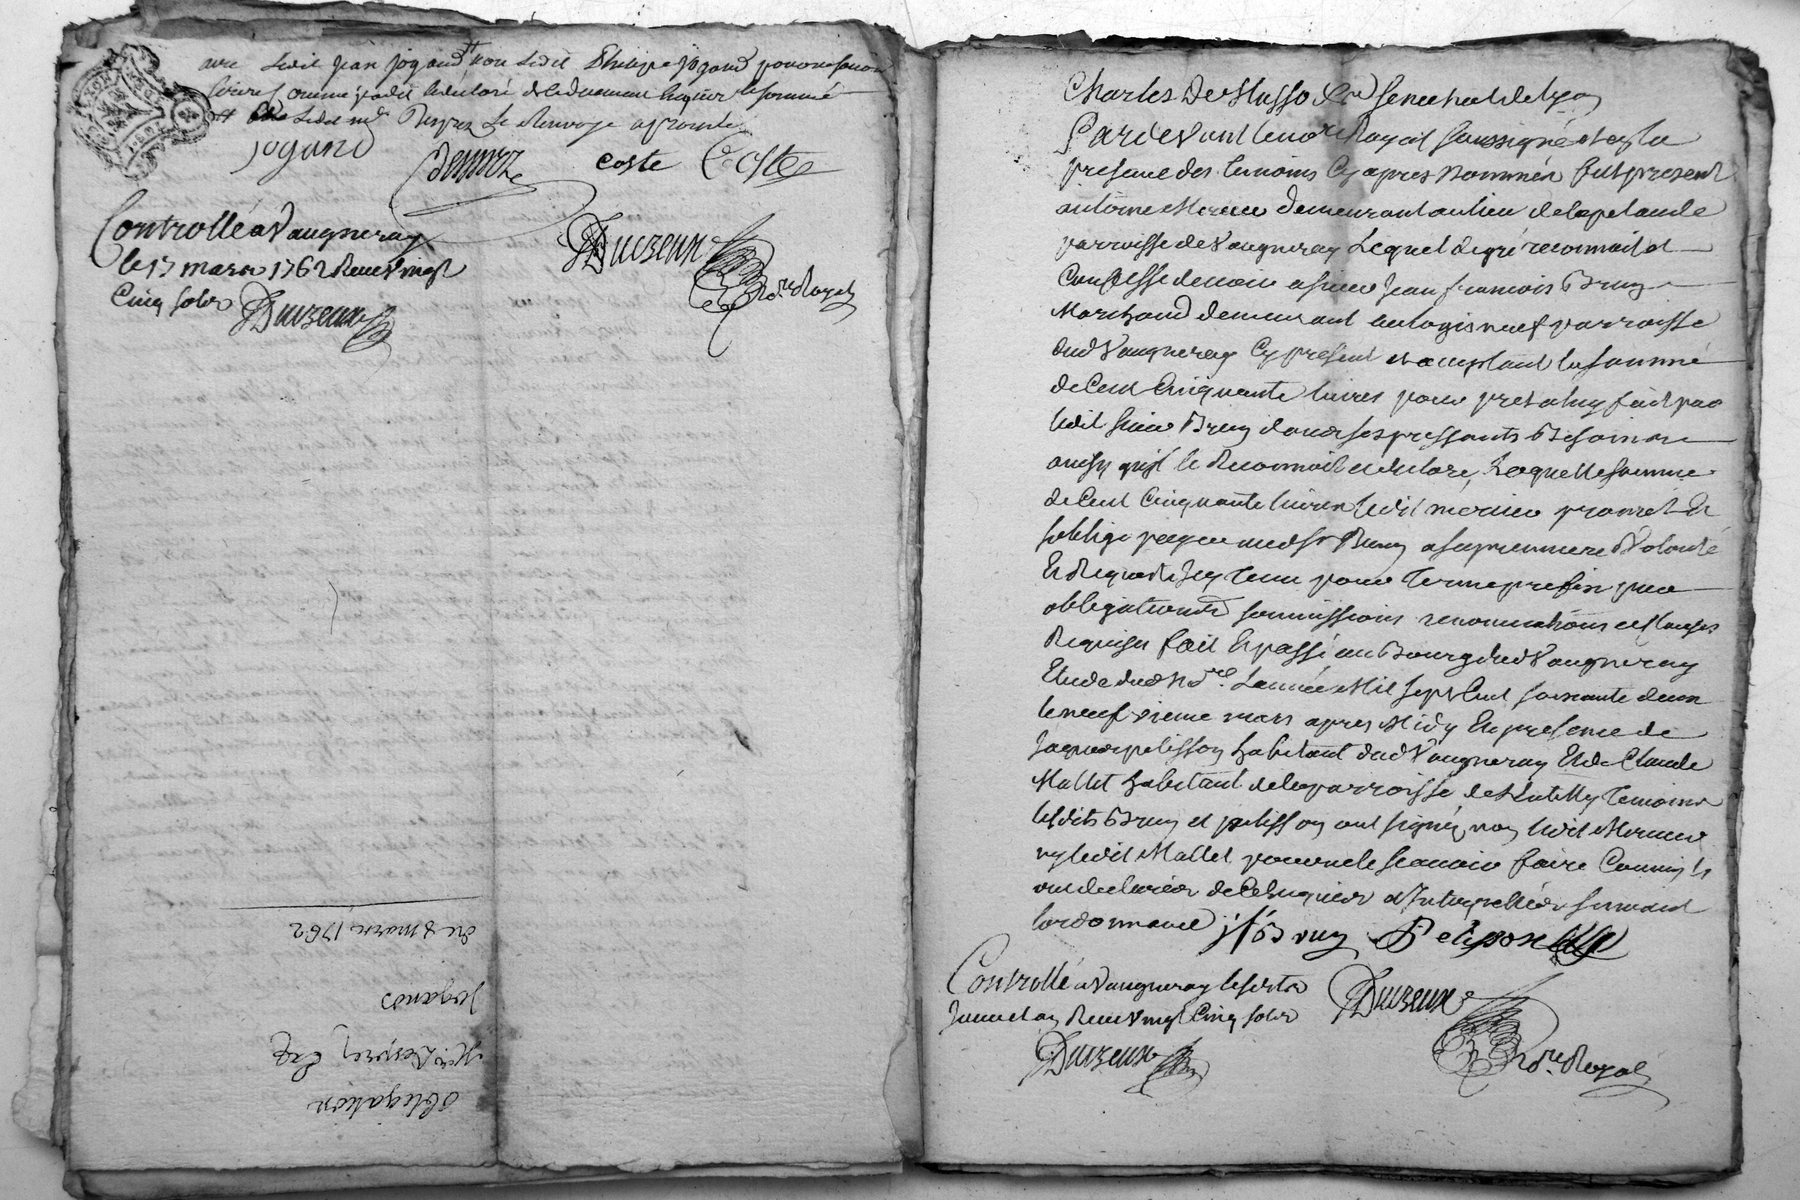 avec ledit Jean Jogand non ledit Philippe Jogand pour ne savoir
ecrire comme il a dit et declaré de le duement requis et sommé
Ledit me Renvoye aprouvé
Jogand
Coste Coste
Controllé a Vaugneray
le 17 mars 1762 Receu Vingt
Cinq sols Duvzeux
Duvzeux
No.re Royal
du 8 mars 1762
Jogand
Me. Desprez
obligation
Charles De Masso &.re senechal de Lyon
Pardevant le no.re Royal soussigné et en la
presence des temoins Cy apres Nommés fut present
antoine Mercier demeurant au lieu de
parroisse de Vaugneray Lequel de gré reconnait et
Confesse devoir a sieur Jean francois Bruy
Marchand demeurant au logis neuf parroisse
dud Vaugneray Cy present et acceptant la somme
de Cent Cinquante livres pour prest a luy fait par
ledit sieur Bruy dans ses pressants Besoins
ainsy qu'il le Reconnoit et declare, Laquelle somme
de Cent Cinquante livres ledit mercier promet Et
s'oblige payer aud sr Bruy a sa premiere Volonté
Et Requeste pour Terme prefix par
obligations soumissions renonciations et clauses
Requises fait Et passé au Bourg dud Vaugneray
Etude dud No.re Lannée Mil sept Cent soixante deux
le neufvieme mars apres Midy En presence de
Jaques pelisson habitant dud Vaugneray Et de Claude
Mallet habitant de la parroisse de temoins
lesdits Bruy et pelisson ont signé, non ledit Mercier
ny ledit Mallet pour ne le scavoir faire Comme ils
ont declaré de Ce Enquis et Interpellés suivant
lordonnance j f Bruy Pelisson
Controllé a Vaugneray le
Receu Vingt Cinq sols
Duvzeux
Duvzeux
No.re Royal